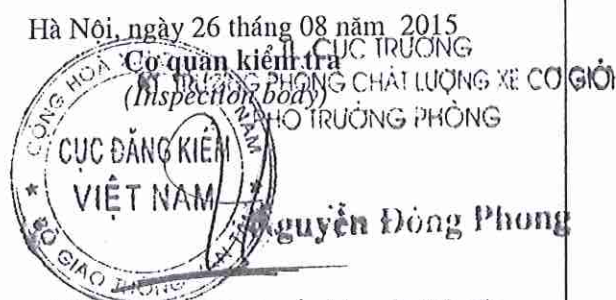 Hà Nội, ngày 26 tháng 08 năm 2015
Cơ quan kiểm tra
(Inspection body)
CỤC TRƯỞNG
TRƯỞNG PHÒNG CHẤT LƯỢNG XE CƠ GIỚI
PHÓ TRƯỞNG PHÒNG
CỘNG HOÀ NAM
CỤC ĐĂNG KIỂM
VIỆT NAM
BỘ GIAO THÔNG VẬN TẢI
Nguyễn Đông Phong